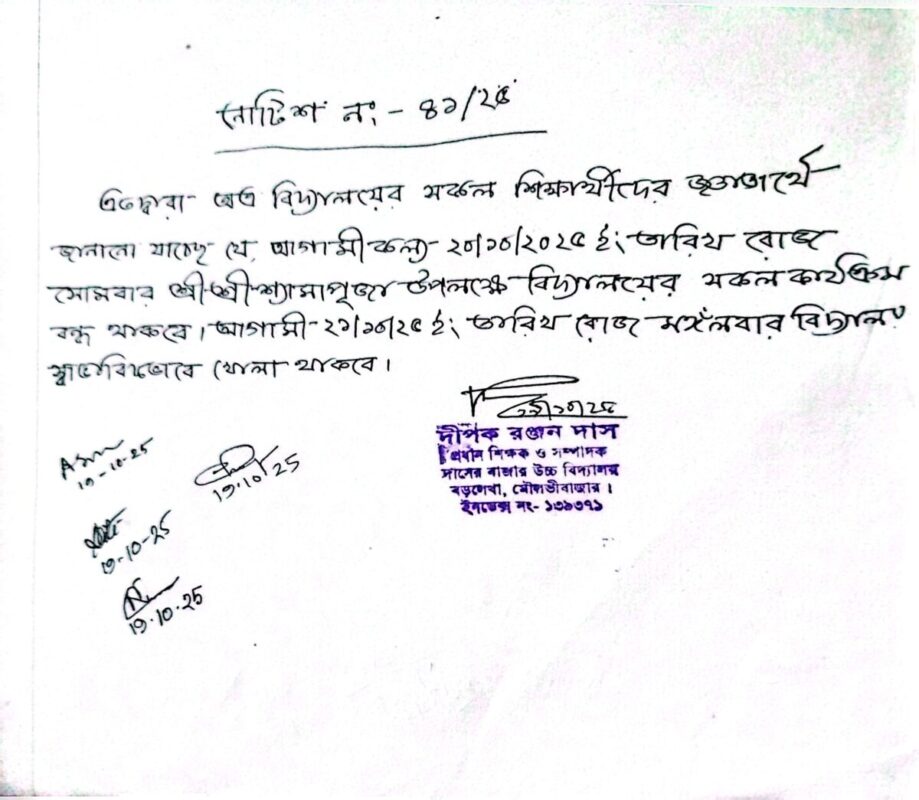 নোটিশ নং - ৪১/২৫
এতদ্বারা অত্র বিদ্যালয়ের সকল শিক্ষার্থীদের জ্ঞাতার্থে
জানানো যাচ্ছে যে, আগামীকল্য ২০/১০/২০২৫ ইং তারিখ রোজ
সোমবার শ্রী শ্রী শ্যামাপূজা উপলক্ষে বিদ্যালয়ের সকল কার্যক্রম
বন্ধ থাকবে। আগামী-২১/১০/২৫ ইং তারিখ রোজ মঙ্গলবার বিদ্যালয়
স্বাভাবিকভাবে খোলা থাকবে।
১৯/১০/২৫
দীপক রঞ্জন দাস
প্রধান শিক্ষক ও সম্পাদক
দাসের বাজার উচ্চ বিদ্যালয়
বড়লেখা, মৌলভীবাজার।
ইনডেক্স নং- ১৩১৩৭১
19-10-25
19.10.25
19-10-25
19.10.25